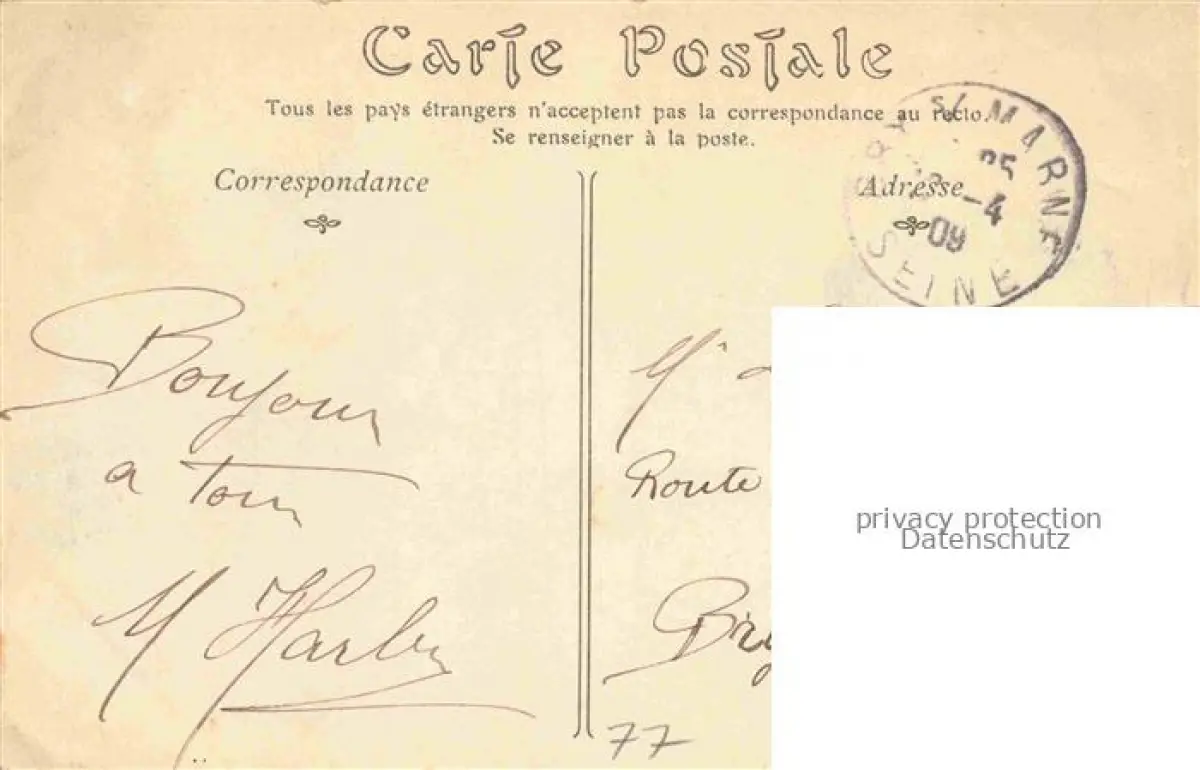 Carte Postale
Tous les pays étrangers n'acceptent pas la correspondance au recto.
Se renseigner à la poste.
Correspondance
Adresse
S/ MARNE
25 -4
09
SEINE
Bonjour
a tous
M
Route
77
privacy protection
Datenschutz